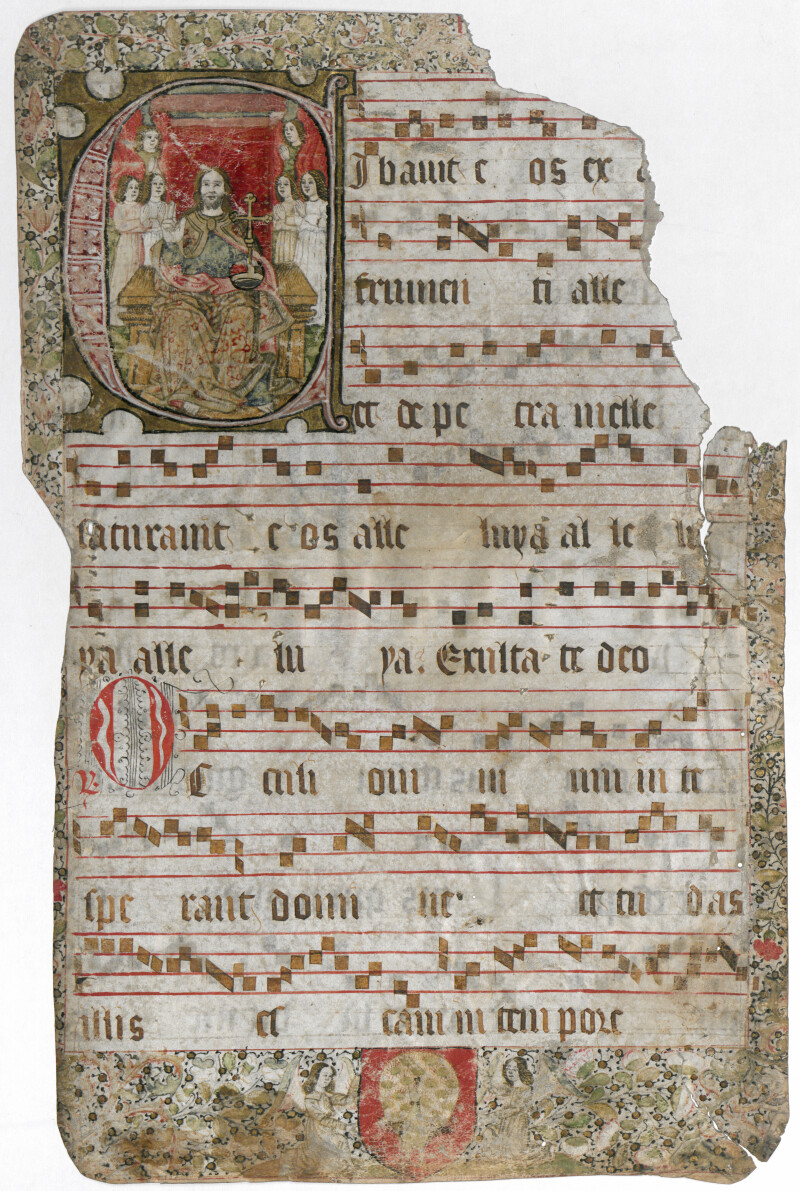 Cibavit e os ex a
frumen ti alle
et de pe tra melle
saturavit e os alle luya al le lu
ya alle lu ya. Exulta te deo
℞ Oculi omn i um in te
spe rant domi ne et tu das
illis es cam in tempore